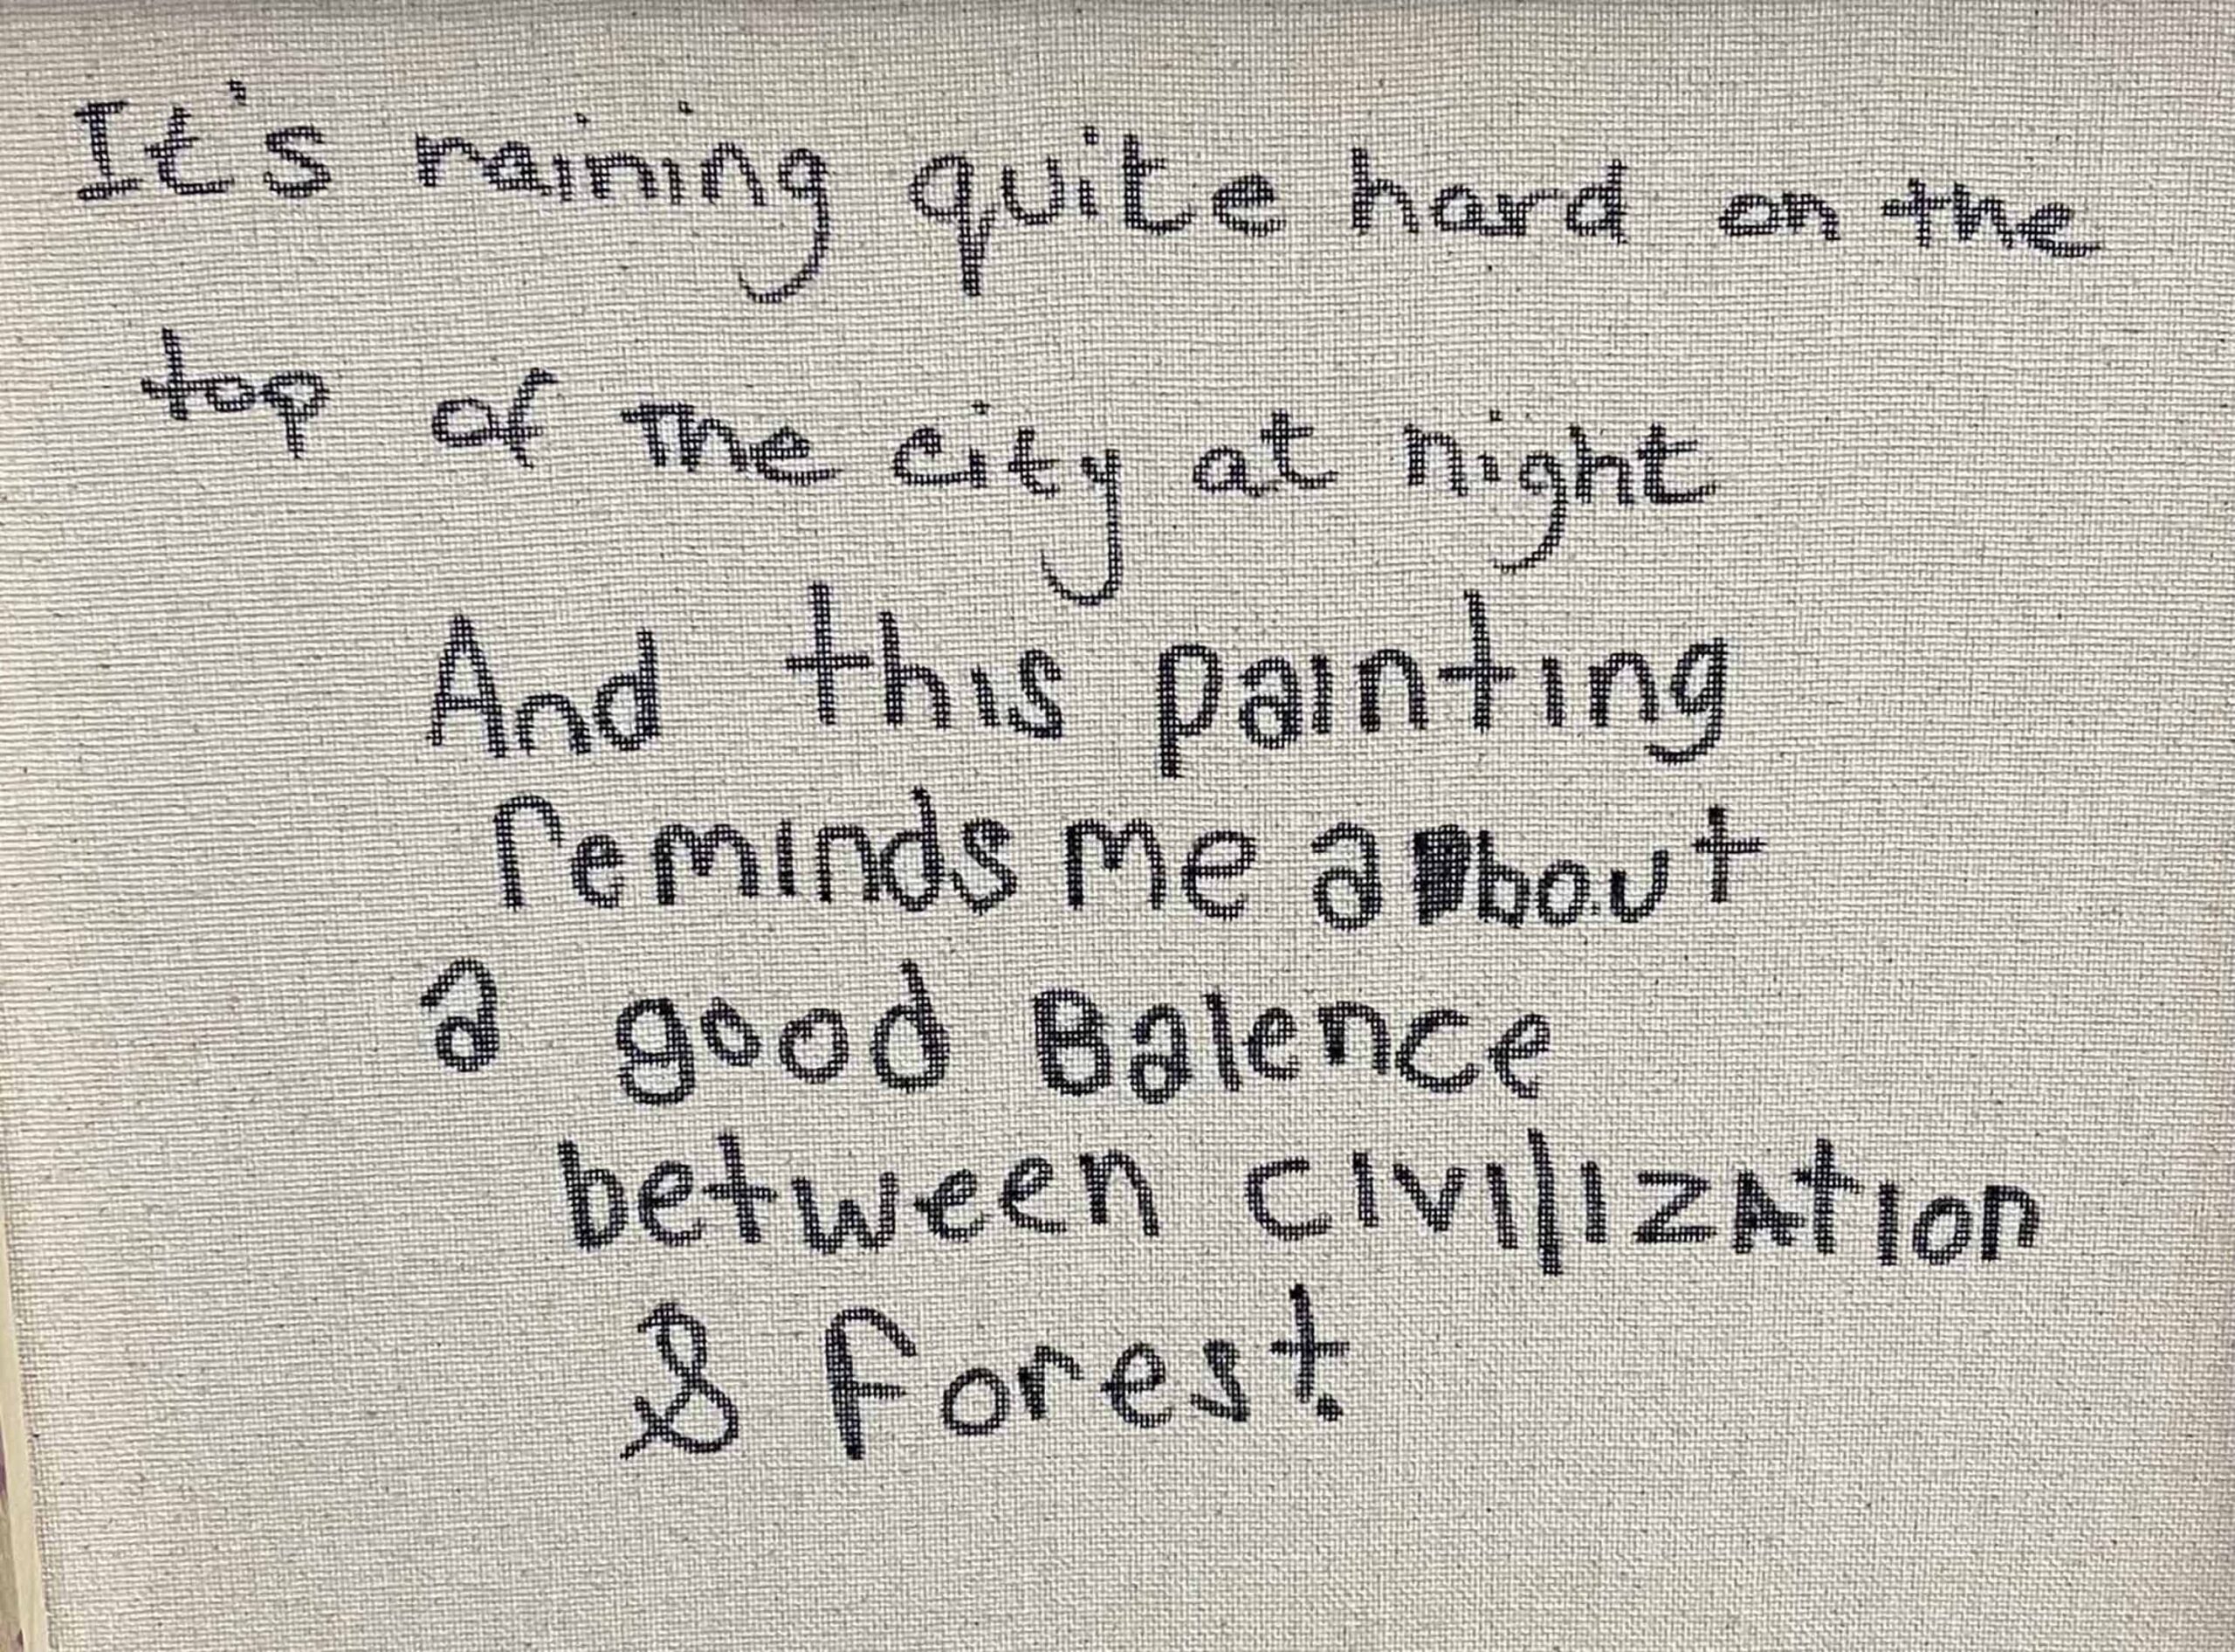 It's raining quite hard on the
top of the city at night
And this painting
reminds me about
a good Balence
between civilizAtion
& Forest.